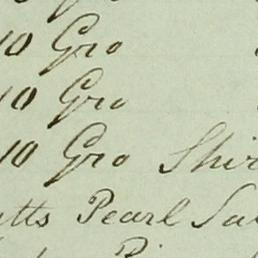 10 Gro
10 Gro
10 Gro Shir
tts Pearl